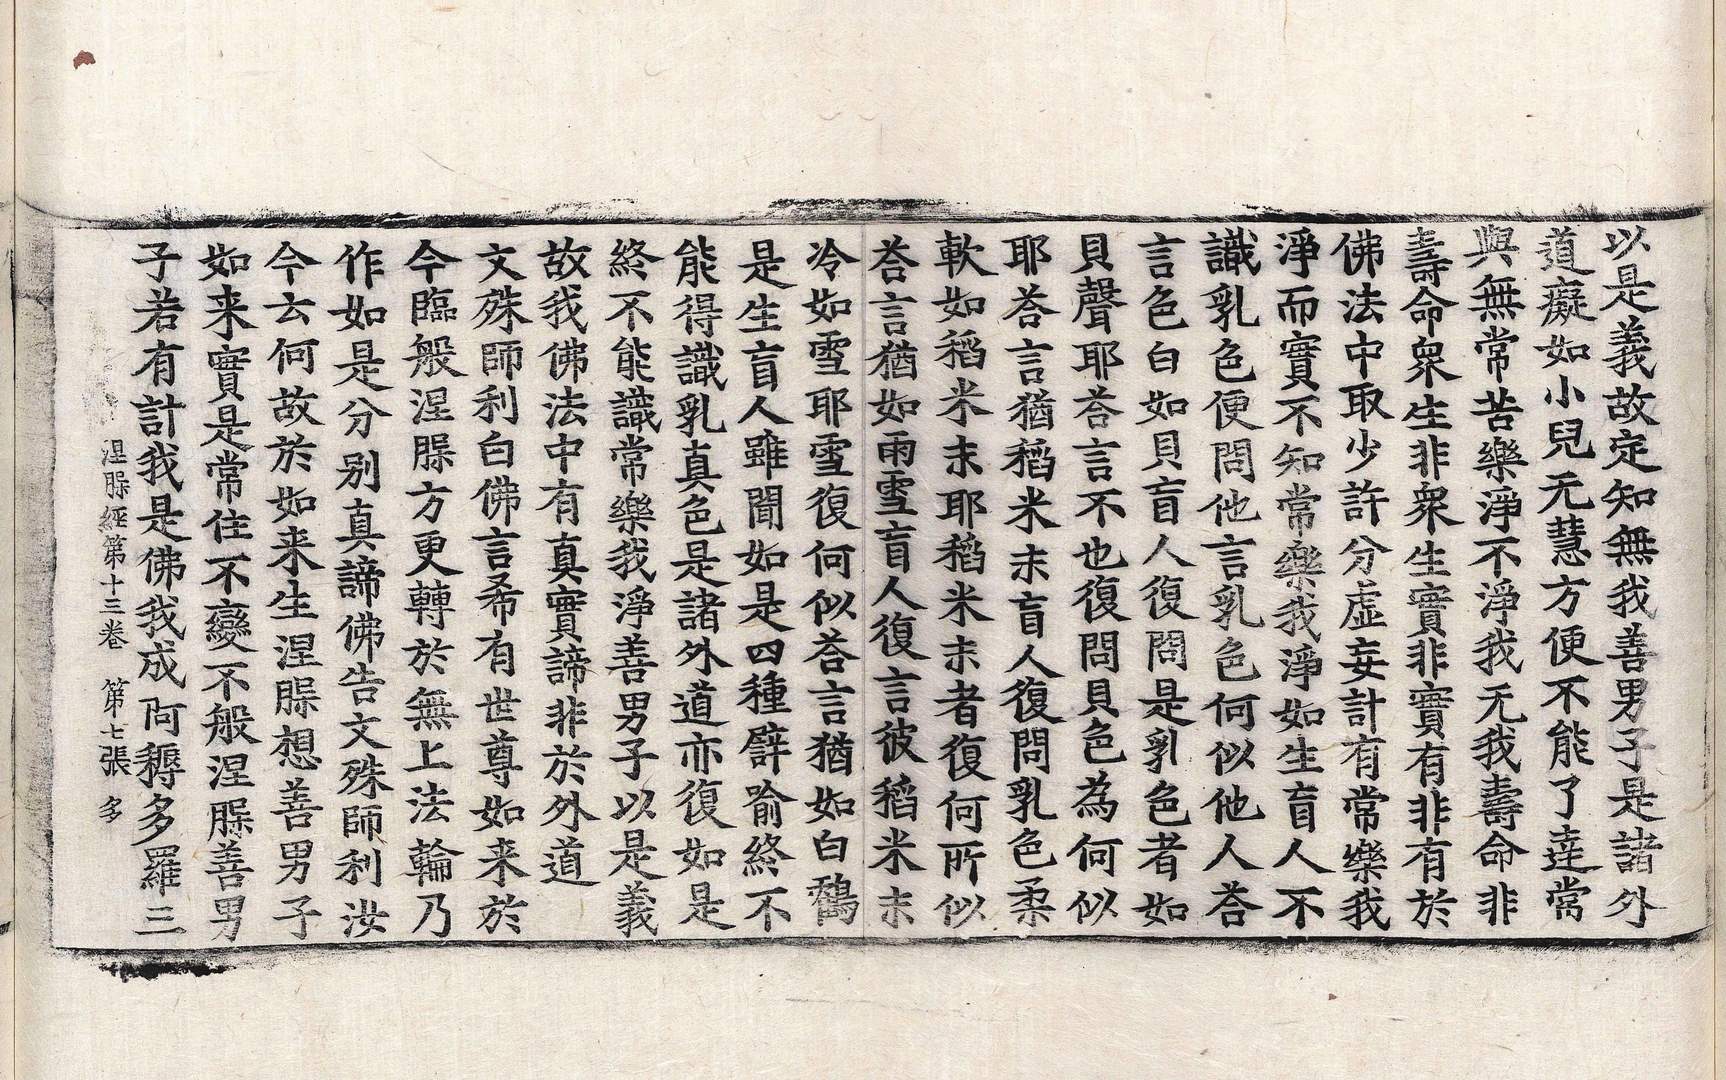 以是義故定知無我善男子是諸外
道癡如小兒无慧方便不能了達常
與無常苦樂淨不淨我无我壽命非
壽命衆生非衆生實非實有非有於
佛法中取少許分虛妄計有常樂我
淨而實不知常樂我淨如生盲人不
識乳色便問他言乳色何似他人荅
言色白如貝盲人復問是乳色者如
貝聲耶荅言不也復問貝色為何似
耶荅言猶稻米末盲人復問乳色柔
軟如稻米末耶稻米末者復何所似
荅言猶如雨雪盲人復言彼稻米末
冷如雪耶雪復何似荅言猶如白鶴
是生盲人雖聞如是四種譬喻終不
能得識乳真色是諸外道亦復如是
終不能識常樂我淨善男子以是義
故我佛法中有真實諦非於外道
文殊師利白佛言希有世尊如来於
今臨般涅槃方更轉於無上法輪乃
作如是分别真諦佛告文殊師利汝
今云何故於如来生涅槃想善男子
如来實是常住不變不般涅槃善男
子若有計我是佛我成阿耨多羅三
涅槃經第十三卷 第七張 多